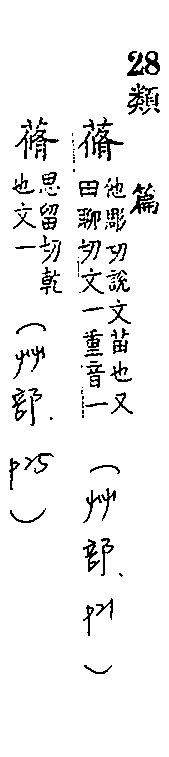 28類篇
蓨 他彫切說文苗也又田聊切文一重音一 (艸部、p21)
蓨 思留切乾也文一 (艸部、p25)